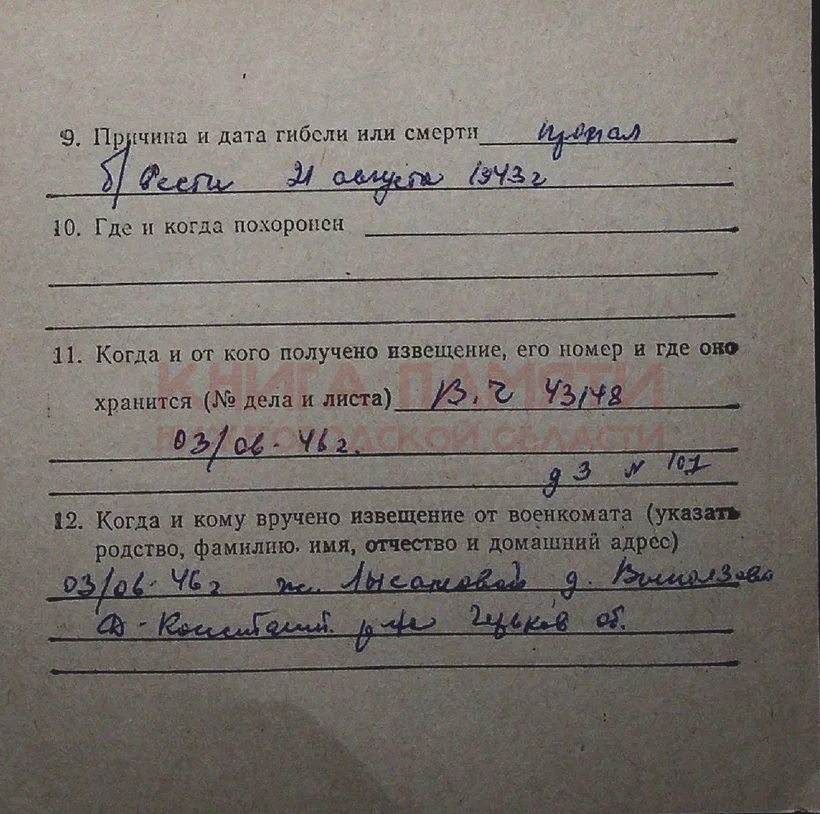 9. Причина и дата гибели или смерти пропал
б/вести 21 августа 1943 г
10. Где и когда похоронен
11. Когда и от кого получено извещение, его номер и где оно
КНИГА ПАМЯТИ
хранится (№ дела и листа) В.Ч 43148
НИЖЕГОРОДСКОЙ ОБЛАСТИ
03/06-46 г.
д 3 N 107
12. Когда и кому вручено извещение от военкомата (указать
родство, фамилию. имя, отчество и домашний адрес)
03/06-46 г ж. д. Выползово
Д-Констант. р-на Горьков об.